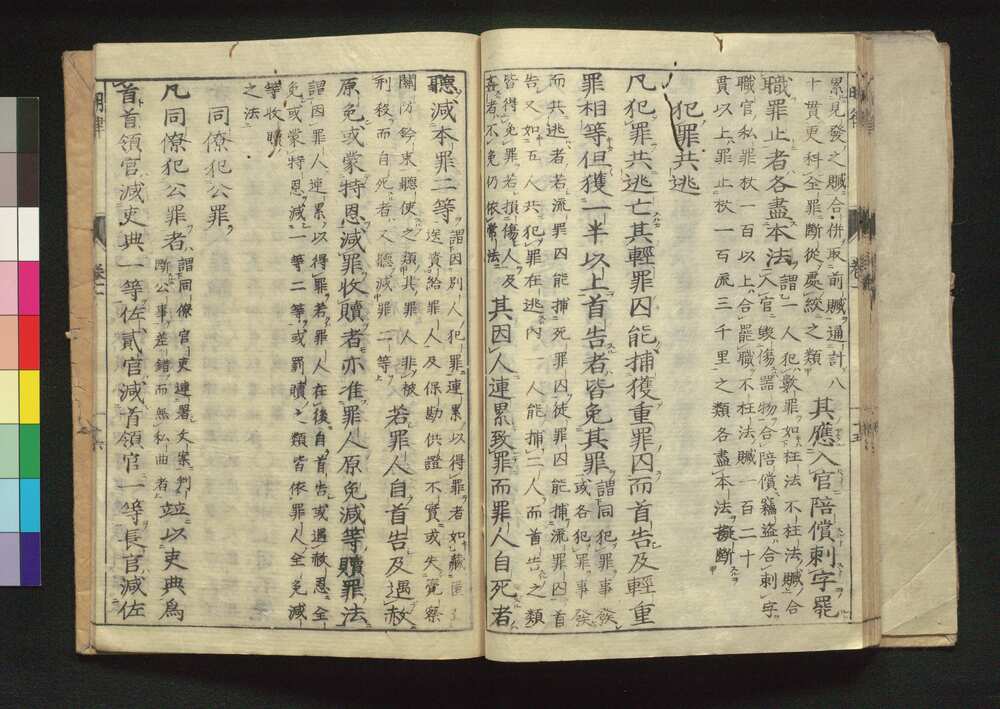 明律
卷一
五
累見發之贓合併取前贓通計八
十貫更科全罪斷從處絞之類
其應入官陪償刺字罷
職罪止者各盡本法
謂一人犯數罪如枉法不枉法贓合
入官毀傷器物合陪償竊盜合刺字
職官私罪杖一百以上合罷職不枉法贓一百二十
貫以上罪止杖一百流三千里之類各盡本法擬斷
犯罪共逃
凡犯罪共逃亡其輕罪囚能捕獲重罪囚而首告及輕重
罪相等但獲一半以上首告者皆免其罪
謂同犯罪事發
或各犯罪事發
而共逃者若流罪囚能捕死罪囚徒罪囚能捕流罪囚首
告又如五人共犯罪在逃內一人能捕二人而首告之類
皆得免罪若損傷人及
姦者不免仍依常法
其因人連累致罪而罪人自死者
聽減本罪二等
謂因別人犯罪連累以得罪者如藏匿引
送資給罪人及保勘供證不實或失覺察
關防鈐束聽使之類其罪人非被
刑殺而自死者又聽減罪二等
若罪人自首告及遇赦
原免或蒙特恩減罪收贖者亦准罪人原免減等贖罪法
謂因罪人連累以得罪若罪人在後自首告或遇赦恩全
免或蒙特恩減一等二等或罰贖之類皆依罪人全免減
等收贖
之法
同僚犯公罪
凡同僚犯公罪者
謂同僚官吏連署文案判
斷公事差錯而無私曲者
並以吏典爲
首首領官減吏典一等佐貳官減首領官一等長官減佐
明律
卷一
六